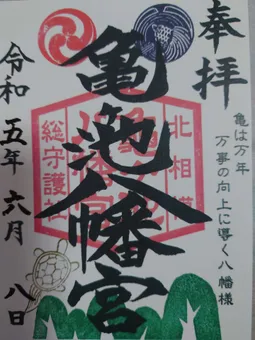 奉拝
亀は万年
万事の向上に導く八幡様
亀ヶ池八幡宮
北相模
総守護社
令和五年六月八日